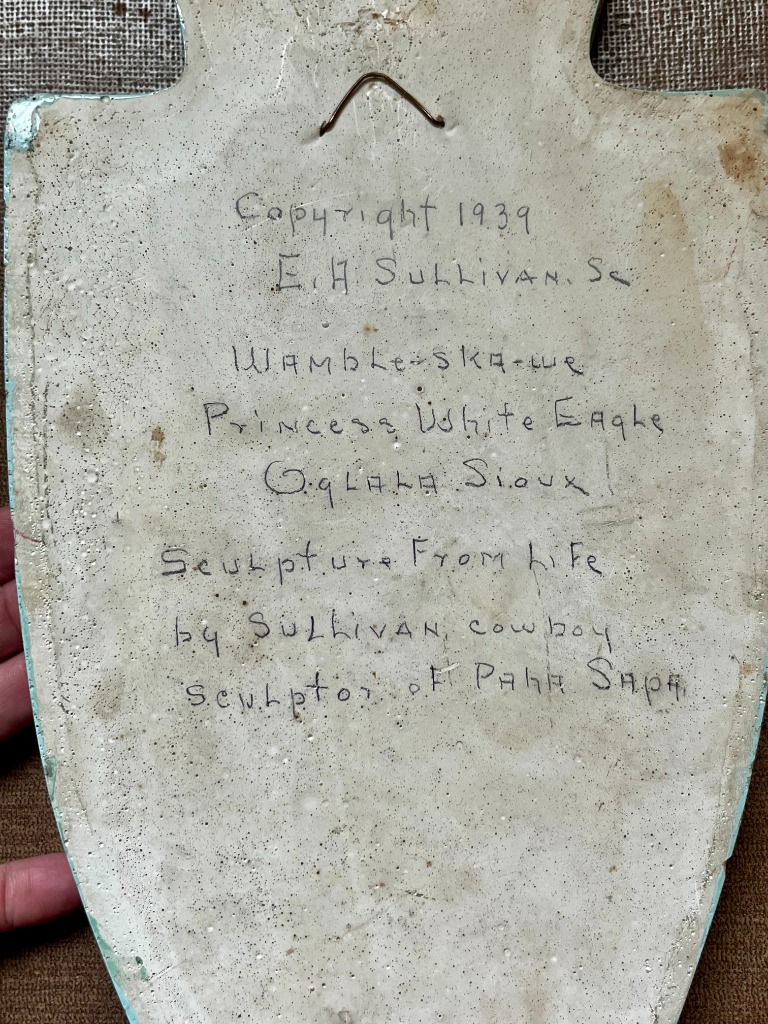 Copyright 1939
E.A SULLIVAN. Sc
WAMbLe-SKA-we
Princess White EAgLe
OgLALA Sioux
ScuLpture From Life
by SULLIVAN, cowboy
scuLptor of PAHA SApA